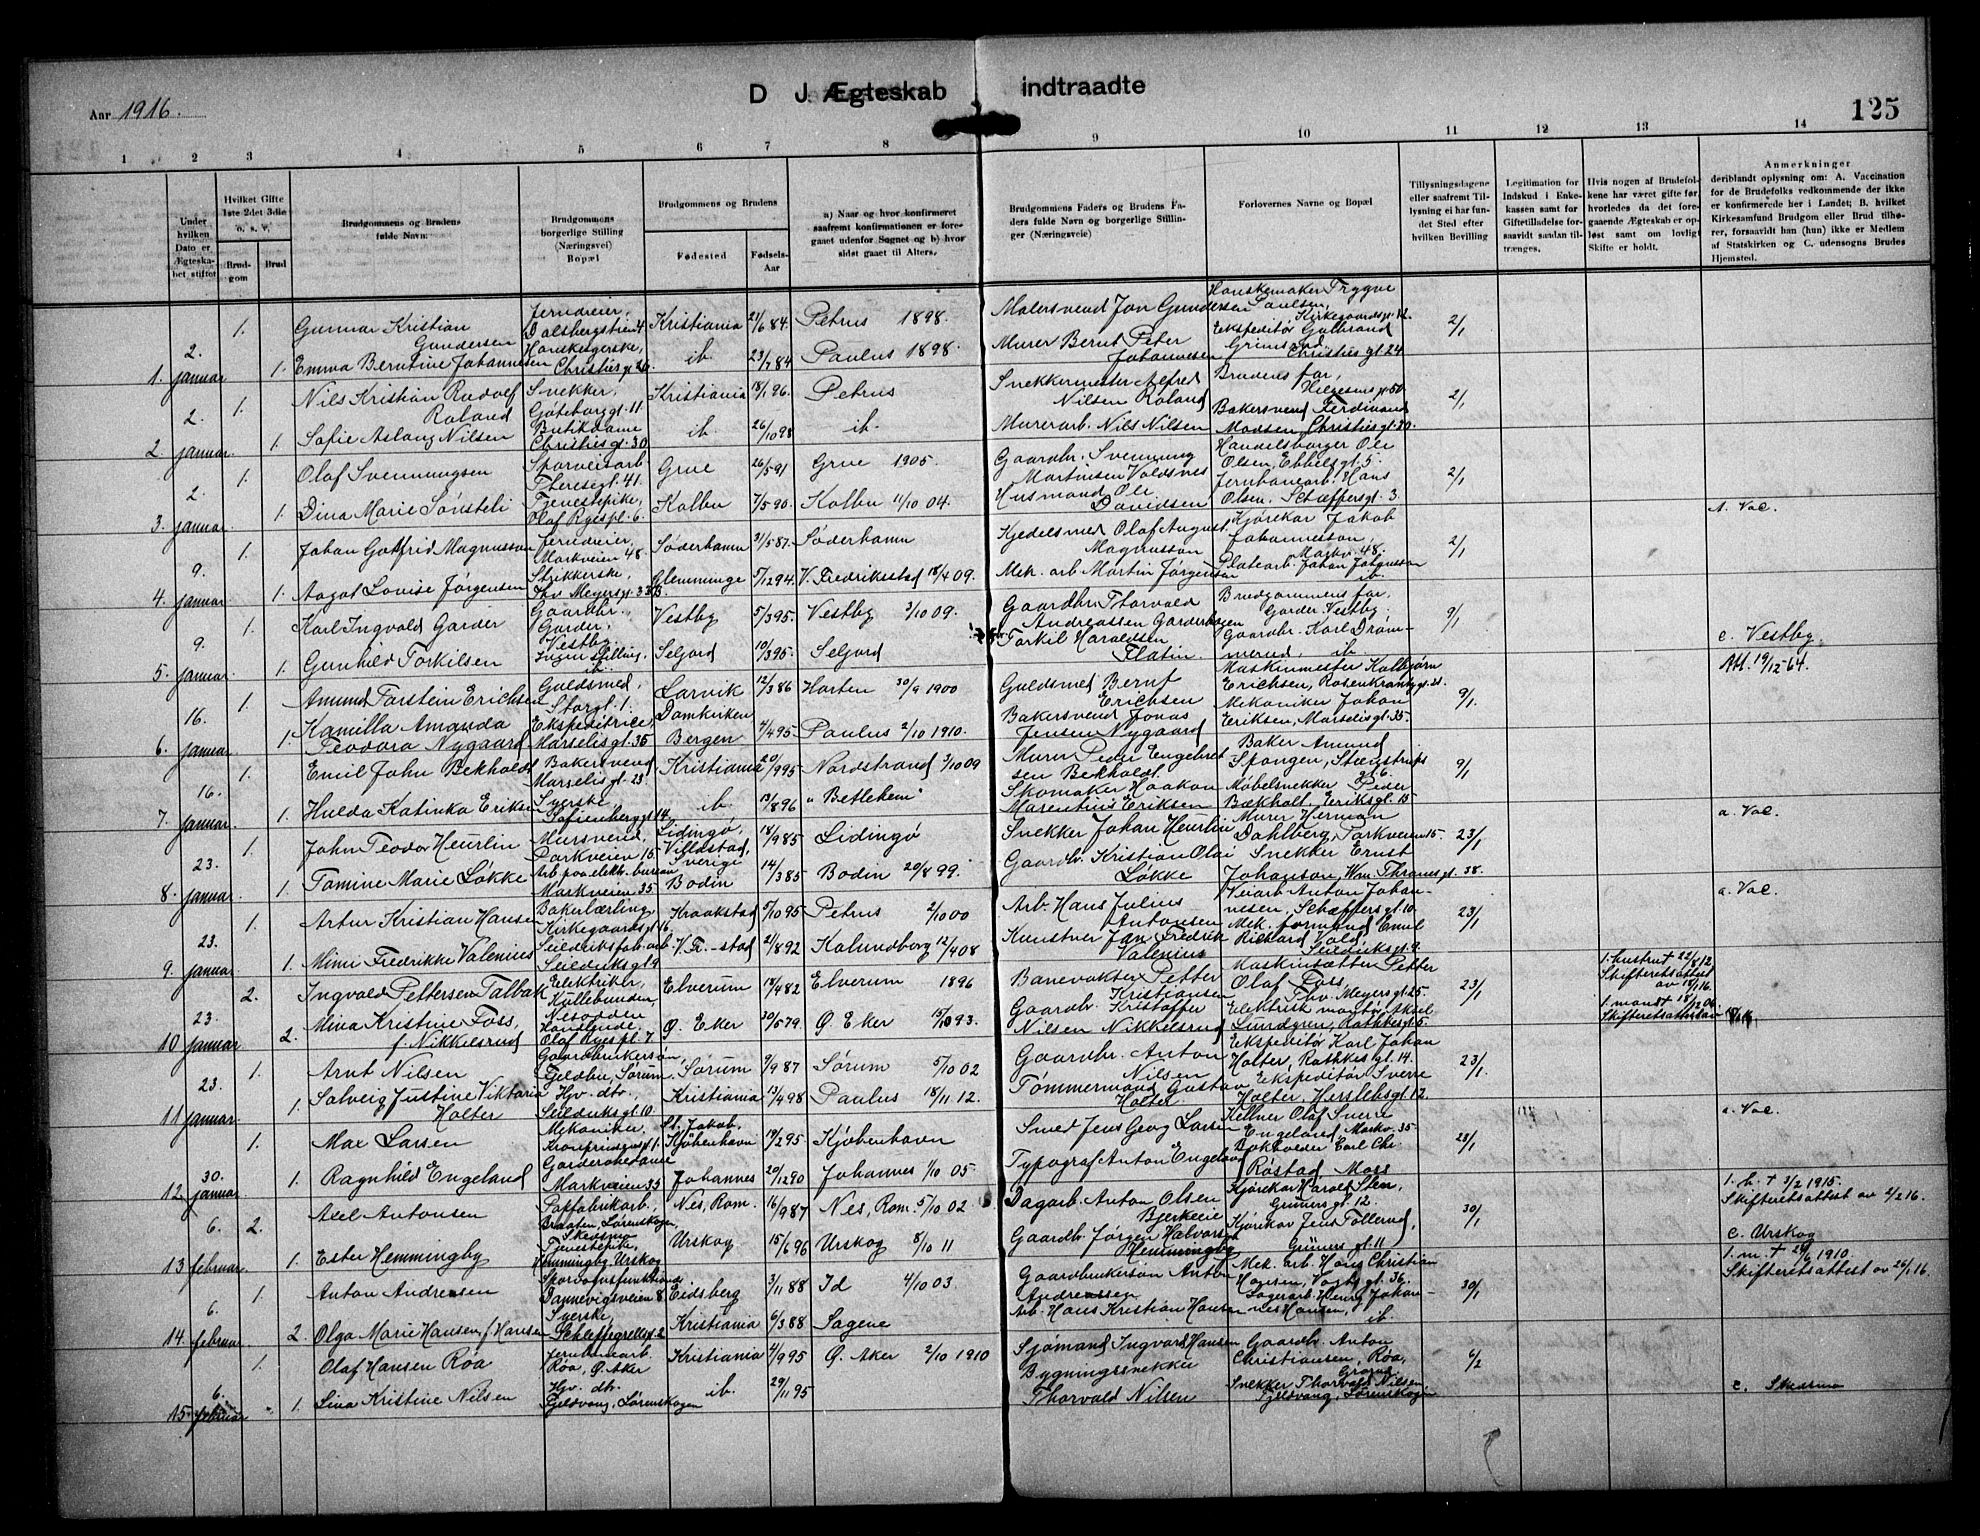 D J. Ægteskab indtraadte
Aar 1916.
125
1 2 3 4 5 6 7 8 9 10 11 12 13 14
Under hvilken Dato er Ægteskabet stiftet
Hvilket Gifte 1ste 2det 3die o. s. v.
Brudgom
Brud
Brudgommens og Brudens fulde Navn:
Brudgommens borgerlige Stilling (Næringsvei) Bopæl
Brudgommens og Brudens
Fødested
Fødsels-Aar
a) Naar og hvor konfirmeret saafremt konfirmationen er foregaaet udenfor Sognet og b) hvor sidst gaaet til Alters.
Brudgommens Faders og Brudens Faders fulde Navn og borgerlige Stillinger (Næringsveie)
Forlovernes Navne og Bopæl
Tillysningsdagene eller saafremt Tillysning ei har fundet Sted efter hvilken Bevilling
Legitimation for Indskud i Enkekassen samt for Giftetilladelse forsaavidt saadan tiltrænges.
Hvis nogen af Brudefolkene har været gifte før, hvorledes da det foregaaende Ægteskab er opløst samt om lovligt Skifte er holdt.
Anmerkninger
deriblandt oplysning om: A. Vaccination for de Brudefolks vedkommende der ikke er konfirmerede her i Landet; B. hvilket Kirkesamfund Brudgom eller Brud tilhører, forsaavidt han (hun) ikke er Medlem af Statskirken og C. udensogns Brudes Hjemsted.
1. 2. januar 1. Gunnar Kristian Gundersen Jerndreier, Dalsbergstien 4. Kristiania 21/6 84. Petrus 1898. Malersvend Jon Gundersen Hanskemaker Trygve Paulsen, Kirkegaardsgt. 12. 2/1
1. Emma Berntine Johannesen Hanskesyerske, Christiesgt. 26. ib. 23/7 84 Paulus 1898. Murer Bernt Peter Johannesen Ekspeditør Gulbrand Grimsrud, Christiesgt. 24
2. 2. januar. 1. Nils Kristian Rudolf Roland Snekker, Gøteborggt. 11. Kristiania 18/1 96. Petrus Snekkermester Alfred Nilsen Roland Brudens far, Helgesensgt. 50. 2/1
1. Sofie Aslaug Nilsen Butikdame Christiesgt. 30 ib. 26/10 98 ib. Murerarb. Nils Nilsen Bakersvend Ferdinand Madsen, Christiesgt. 20.
3. 2. januar. 1. Olaf Svenningsen Sporveisarb. Theresegt. 41. Grue 26/5 91 Grue 1905. Gaardbr. Svenning Martinsen Voldsnes Handelsborger Ole Olsen, Ebbellsgt. 5. 2/1
1. Dina Marie Sønsteli Tjenestepike, Olaf Ryespl. 6. Kolbu 7/5 90. Kolbu 11/10 04. Husmand Ole Davidsen Jernbanearb. Hans Olsen. Schæffersgt. 3.
4. 9. januar. 1. Johan Gotfrid Magnusson Jerndreier, Markveien 48. Söderhamn 31/5 87. Söderhamn Kjedelsmed Olaf August Magnusson Kjørekar Jakob Johannesson, Markv. 48. 2/1 A. Vac.
1. Aagot Lovise Jørgensen Strikkerske, Thv. Meyersgt. Glemminge 5/12 94. V. Fredriksstad 18/4 09. Mek. arb. Martin Jørgensen Platearb. Johan Jørgensen ib.
5. 9. januar. 1. Karl Ingvald Garder Gaardbr., Garder, Vestby. Vestby 5/3 95. Vestby 3/10 09. Gaardbr. Thorvald Andreassen Garderhagen Brudgommens far, Garder, Vestby. 9/1
1. Gunhild Torkilsen Ingen stilling, ib. Seljord 10/3 95. Seljord Torkil Haraldsen Flatin Gaardbr. Karl Drømnerud ib. c. Vestby.
6. 16. januar. 1. Amund Torstein Erichsen Guldsmed, Storgt. 1. Larvik 12/3 86 Horten 30/9 1900 Guldsmed Bernt Erichsen Maskinmester Kolbjørn Erichsen, Rosenkrantzgt. 21. 9/1 Att. 19/12-64.
1. Kamilla Amanda Teodora Nygaard Ekspeditrice, Marselisgt. 35 Domkirken Bergen 4/4 95. Paulus 2/10 1910. Bakersvend Jonas Jensen Nygaard Mekaniker Johan Eriksen, Marselisgt. 35.
7. 16. januar. 1. Emil John Bekholdt Bakersvend Marselisgt. 23. Kristiania 20/9 95 Nordstrand 3/10 09 Murer Peder Engebretsen Bekholdt. Baker Amund Spongen, Steenstrupsgt. 6. 9/1
1. Hulda Katinka Eriksen Syerske, Sofienberggt. 14. ib. 13/8 96 "Betlehem" Skomaker Haakon Marentius Eriksen Møbelsnekker Peder Bækholt. Eriksgt. 15
8. 23. januar. 1. John Teodor Heurlin Mursvend, Parkveien 15. Lidingö, Villastad, Sverige 18/9 85 Lidingö Snekker Johan Heurlin Murer Herman Dahlberg, Parkveien 15. 23/1 a. Vac.
1. Tomine Marie Løkke Arb. paa elekt. bureau Markveien 35 Bodin 14/3 85 Bodin 20/8 99. Gaardbr. Kristian Olai Løkke Snekker Ernst Johanson, Wm. Thranesgt. 38.
9. 23. januar. 1. Artur Kristian Hansen Bakerlærling, Kirkegaardsgt. 16. Kraakstad 5/10 95 Petrus 2/10 00 Arb. Hans Julius Antonsen Veiarb. Anton Johannesen, Schæffersgt. 10. 23/1 a. Vac.
1. Mimi Fredrikke Valenius Seilduksfab. arb. Seilduksgt. 9 V. Fr.-stad 21/8 92 Kalundborg 12/4 08 Kunstner Jan Fredrik Valenius Mek. formand Emil Rickard Vold Seilduksgt. 9.
10 23. januar. 2. Ingvald Pettersen Talbak Elektriker, Kullebunden, Nesodden Elverum 14/4 82 Elverum 1896 Banevokter Petter Kristiansen Maskinsætter Petter Olaf Foss, Thv. Meyersgt. 25. 23/1 1. hustru † 22/8 12. Skifteretsattest av 18/1 16.
2. Mina Kristine Foss, f. Nikkelsrud Handlende, Olaf Ryespl. 7 Ø. Eker 30/5 79. Ø. Eker 15/10 93. Gaardbr. Kristoffer Nilsen Nikkelsrud Elektrisk montør Aksel Lundgren, Rathkesgt. 5. 1. mand † 18/12 04. Skifteretsattest av
11 23. januar. 1. Arnt Nilsen Gaardbrukersøn, Fjeldbu, Sørum. Sørum 9/9 87 Sørum 5/10 02 Gaardbr. Anton Nilsen Ekspeditør Karl Johan Holter, Rathkesgt. 14. 23/1.
1. Solveig Justine Viktoria Holter Hjv. dtr., Seilduksgt. 10. Kristiania 13/4 98 Paulus 18/11 12. Tømmermand Gustav Holter. Ekspeditør Sverre Holter, Herslebsgt. 12.
12. 30. januar 1. Max Larsen Mekaniker, Kronprinsensgt. 1. St. Jakob, Kjøbenhavn 19/2 95 Kjøbenhavn Smed Jens Georg Larsen Kellner Olaf Sverre Engeland, Markv. 35. 23/1 a. Vac.
1. Ragnhild Engeland Garderobedame Markveien 35 Johannes 20/12 90 Johannes 1/10 05 Typograf Anton Engeland Bokholder Carl Chr. Røstad Moss
13 6. februar. 2. Axel Antonsen Papfabrikarb., Braaten, Lørenskogen, Skedsmo Nes, Rom. 16/9 87 Nes, Rom. 5/10 02 Dagarb. Anton Olsen Bjerkeeie Kjørekar Harald Sten, Grünersgt. 12. 30/1 1. h. † 3/2 1915. Skifteretsattest av 4/2 16.
1. Ester Hemmingby Tjenestepike, Hemmingby, Urskog Urskog 15/6 96 Urskog 8/10 11 Gaardbr. Jørgen Halvorsen Hemmingby Kjørekar Jens Tollerud, Grünersgt. 11 c. Urskog
14. 6. februar. 1. Anton Andreasen Sporvognsfunktionær Dannevigsveien 8 Eidsberg 3/11 88 Id 4/10 03. Gaardbrukersøn Anton Andreassen Mek. arb. Hans Christian Hansen, Vogtsgt. 36. 30/1 1. m. † 1910. Skifteretsattest av 26/1 16.
2. Olga Marie Hansen, f. Hansen Syerske, Schleppegrellsgt. 2 Kristiania 6/3 88 Sagene Arb. Hans Kristian Hansen Lagerarb. Henry Johannes Hansen, ib.
15. 6. februar 1. Olaf Hansen Røa Jernbanearb. Røa, Ø. Aker Kristiania 4/9 95 Ø. Aker 2/10 1910 Sjømand Ingvard Hansen Gaardbr. Anton Christiansen, Røa, Grorud. 6/2
1. Lina Kristine Nilsen Hjv. dtr. Fjeldvang, Lørenskogen ib. 29/11 95 Bygningssnekker Thorvald Nilsen Snekker Thorvald Nilsen Fjeldvang, Lørenskogen c. Skedsmo